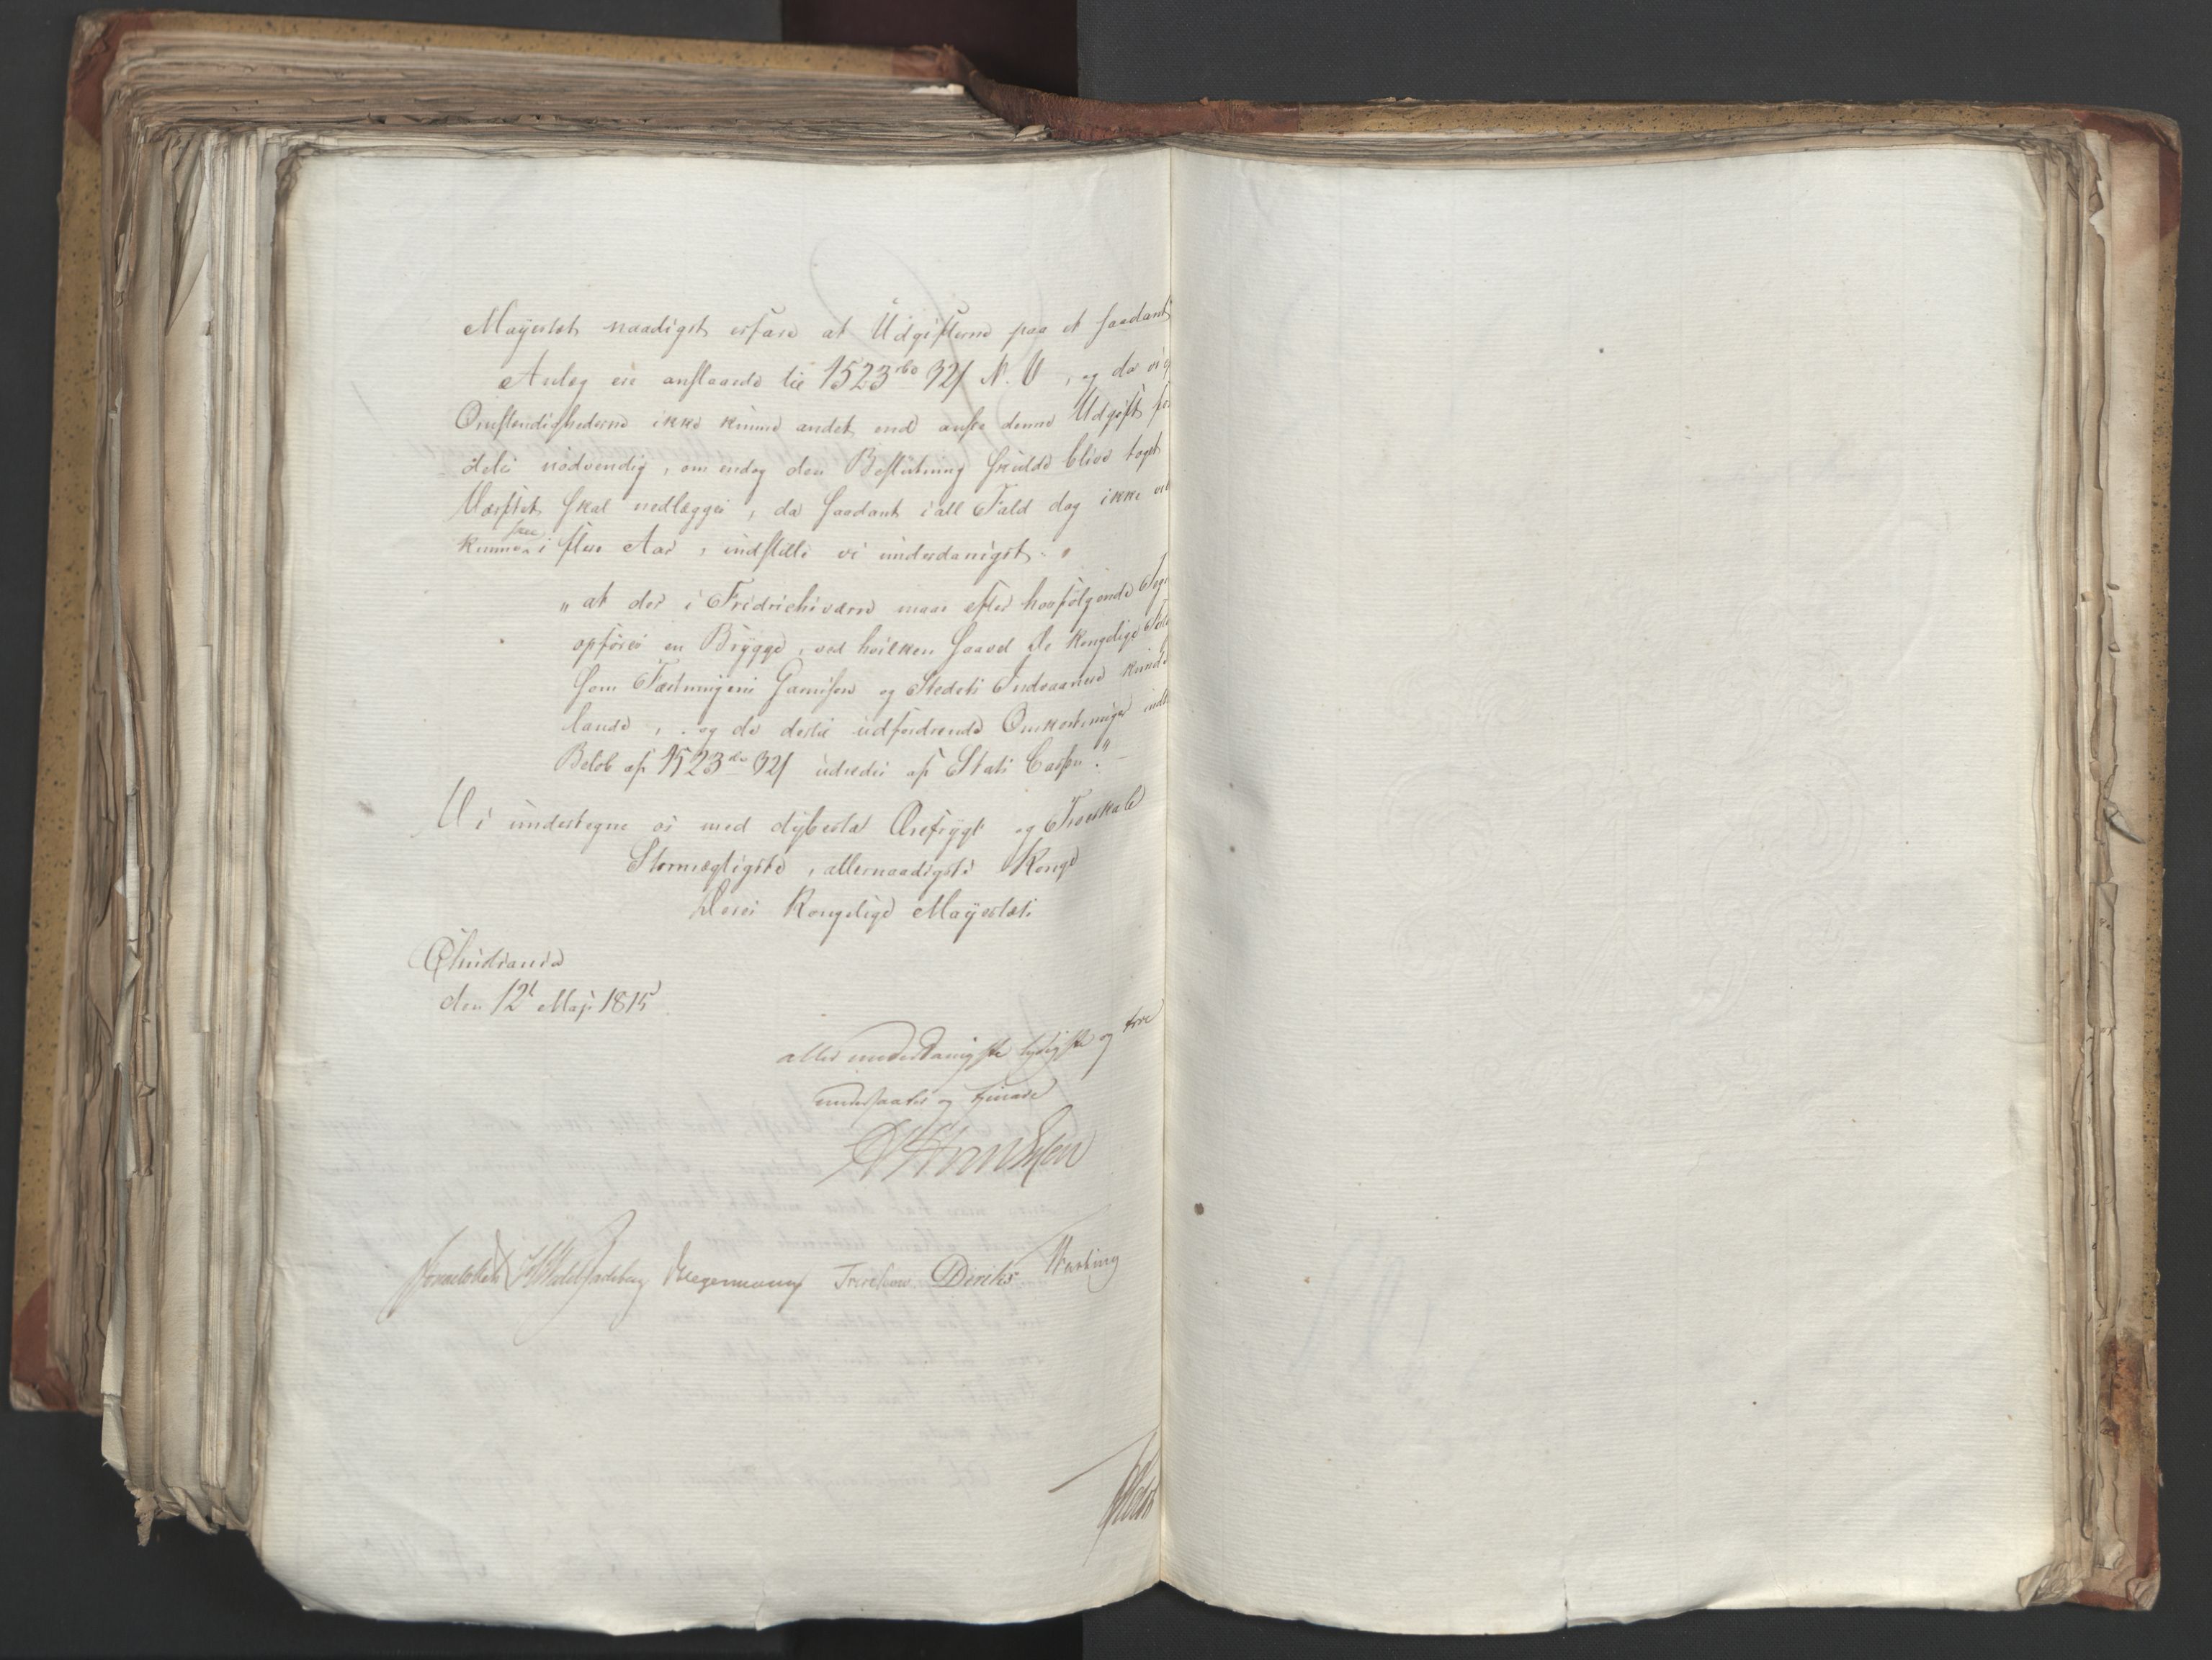 Mayestæt naadigst erfare at Udgifterne paa et saadant
Anlæg ere anslaaede til 1523 rbd 32 s N. V, og da vi
Omstændighederne ikke kunne andet end ansee denne Udgift
nödvendig, om endog den Beslutning skulde blive taget
Værftet skal nedlægges, da saadant i all Fald dog ikke
kunne skee i flere Aar, indstille vi underdanigst.
"at der i Fridrichsværn maae efter hosfölgende
opföres en Brygge, ved hvilken saavel de Kongelige
som Fæstningens Garnison og Stedets Indvaanere kunde
lande, og de dertil udfordrende Omkostninger
Belöb af 1523 rbd 32 s udredes af Stats Cassen."
Vi undertegne os med dybeste Ærefrygt og Troeskab
Stormægtigste, allernaadigste Konge
Deres Kongelige Mayestæts
Christiania
den 12t Maji 1815
aller underdanigste lydigste og troe
undersaatter og tienere
Sommerhielm Wedel Jarlsberg Hegermann Treschow Diriks